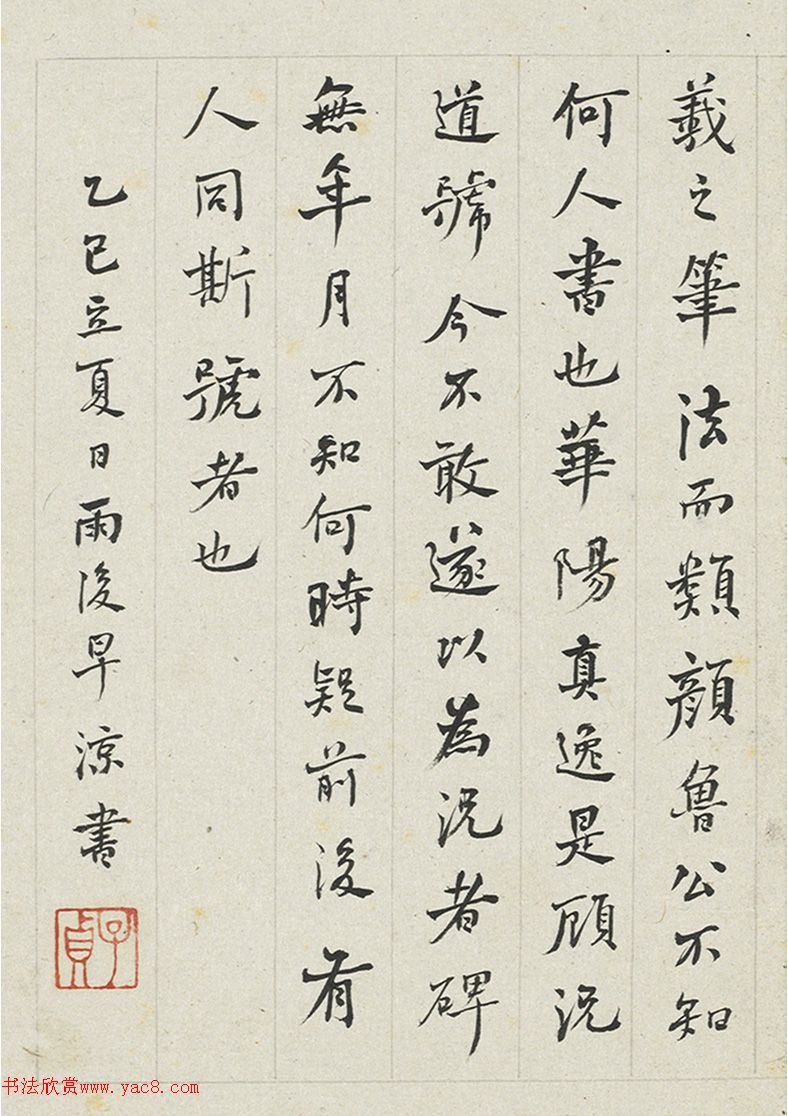 羲之筆法而類顏魯公不知
何人書也華陽真逸是顧況
道號今不敢遂以為況者碑
無年月不知何時疑前後有
人同斯號者也
乙巳立夏日雨後早涼書
子貞
书法欣赏www.yac8.com